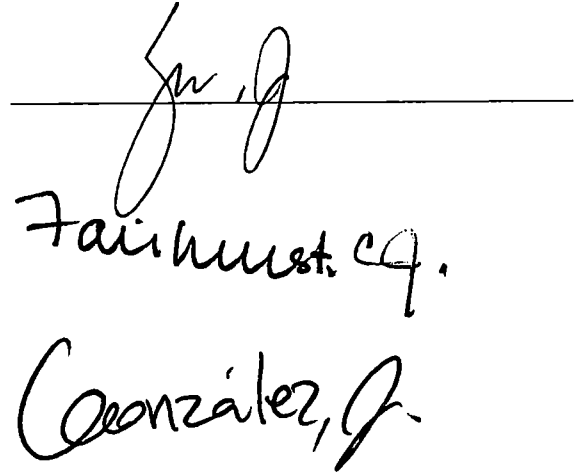 Zur, J
Fairhurst. CJ.
González, J.